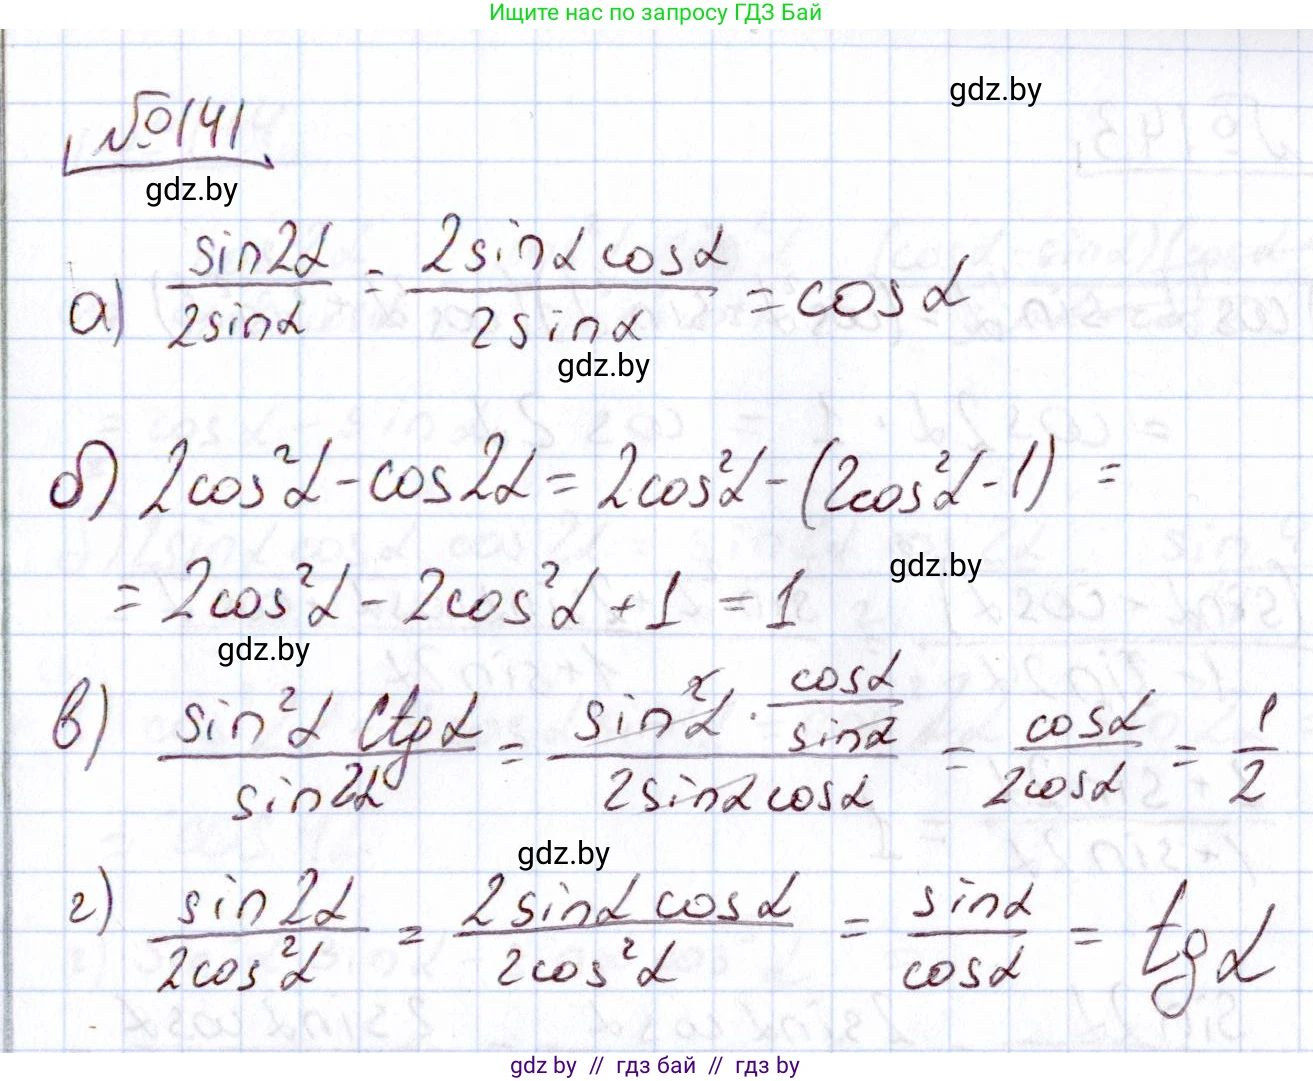 Ищите нас по запросу ГДЗ Бай
gdz.by
№141
gdz.by
а) sin2α/2sinα = 2sinα cosα/2sinα = cosα
gdz.by
б) 2cos²α - cos2α = 2cos²α - (2cos²α - 1) =
gdz.by
= 2cos²α - 2cos²α + 1 = 1
gdz.by
в) sin²α ctgα/sin2α = sin²α · cosα/sinα/2sinα cosα = cosα/2cosα = 1/2
gdz.by
г) sin2α/2cos²α = 2sinα cosα/2cos²α = sinα/cosα = tgα
gdz by // гдз бай // гдз by